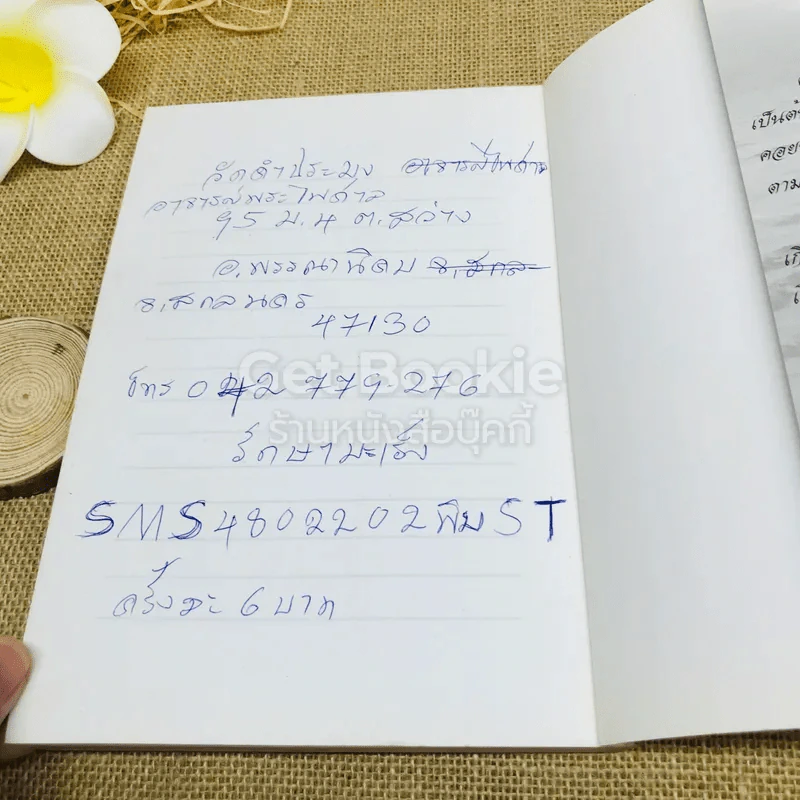 วัดคำประมง อาจารย์ไพศาล
อาจารย์พระไพศาล
95 ม.4 ต.สว่าง
อ.พรรณานิคม จ.สกล
จ.สกลนคร
47130
โทร 042 779-276
รักษามะเร็ง
SMS 4802202 พิม ST
ครั้งละ 6 บาท
Get Bookie
ร้านหนังสือบุ๊คกี้
เป็นต้
คอย
ตาม